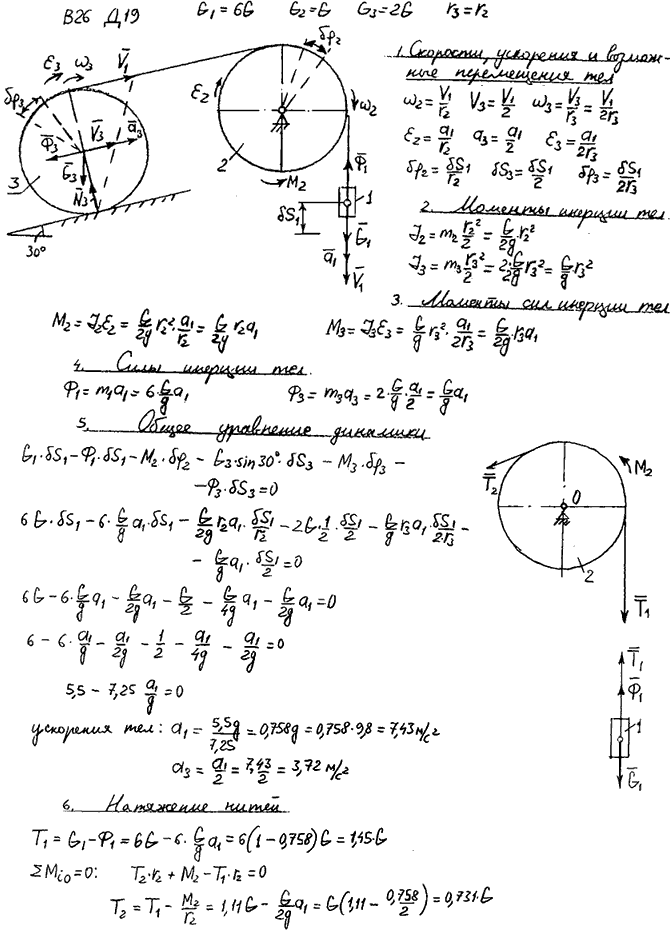 В26 Д19 G₁ = 6G G₂ = G G₃ = 2G r₃ = r₂
1. Скорости, ускорения и возмож-
ные перемещения тел
ω₂ = V₁/r₂ V₃ = V₁/2 ω₃ = V₃/r₃ = V₁/2r₃
ε₂ = a₁/r₂ a₃ = a₁/2 ε₃ = a₁/2r₃
δφ₂ = δS₁/r₂ δS₃ = δS₁/2 δφ₃ = δS₁/2r₃
ε₃ ω₃ V̄₁ δφ₂
δφ₃ ε₂ ω₂
Φ̄₃ V̄₃ ā₃
3 Ḡ₃ N̄₃ 2 Φ̄₁
M₂ δS₁ 1
30° Ḡ₁
ā₁ V̄₁
2. Моменты инерции тел.
J₂ = m₂ r₂²/2 = G/2g · r₂²
J₃ = m₃ r₃²/2 = 2·G/2g r₃² = G/g r₃²
3. Моменты сил инерции тел
M₂ = J₂ε₂ = G/2g r₂² · a₁/r₂ = G/2g r₂a₁ M₃ = J₃ε₃ = G/g r₃² · a₁/2r₃ = G/2g · r₃a₁
4. Силы инерции тел.
Φ₁ = m₁a₁ = 6·G/g a₁ Φ₃ = m₃a₃ = 2·G/g · a₁/2 = G/g a₁
5. Общее уравнение динамики
G₁·δS₁ − Φ₁·δS₁ − M₂·δφ₂ − G₃·sin30°·δS₃ − M₃·δφ₃ −
− Φ₃·δS₃ = 0
6G·δS₁ − 6·G/g a₁·δS₁ − G/2g r₂a₁·δS₁/r₂ − 2G·1/2·δS₁/2 − G/g r₃a₁·δS₁/2r₃ −
− G/g a₁·δS₁/2 = 0
6G − 6·G/g a₁ − G/2g a₁ − G/2 − G/4g a₁ − G/2g a₁ = 0
6 − 6·a₁/g − a₁/2g − 1/2 − a₁/4g − a₁/2g = 0
5,5 − 7,25 a₁/g = 0
ускорения тел: a₁ = 5,5g/7,25 = 0,758g = 0,758·9,8 = 7,43 м/с²
a₃ = a₁/2 = 7,43/2 = 3,72 м/с²
T̄₂ M₂
O
2
T̄₁
T̄₁
Φ̄₁
1
Ḡ₁
6. Натяжение нитей
T₁ = G₁ − Φ₁ = 6G − 6·G/g a₁ = 6(1 − 0,758)G = 1,45·G
ΣMᵢₒ = 0: T₂·r₂ + M₂ − T₁·r₂ = 0
T₂ = T₁ − M₂/r₂ = 1,11G − G/2g a₁ = G(1,11 − 0,758/2) = 0,731·G